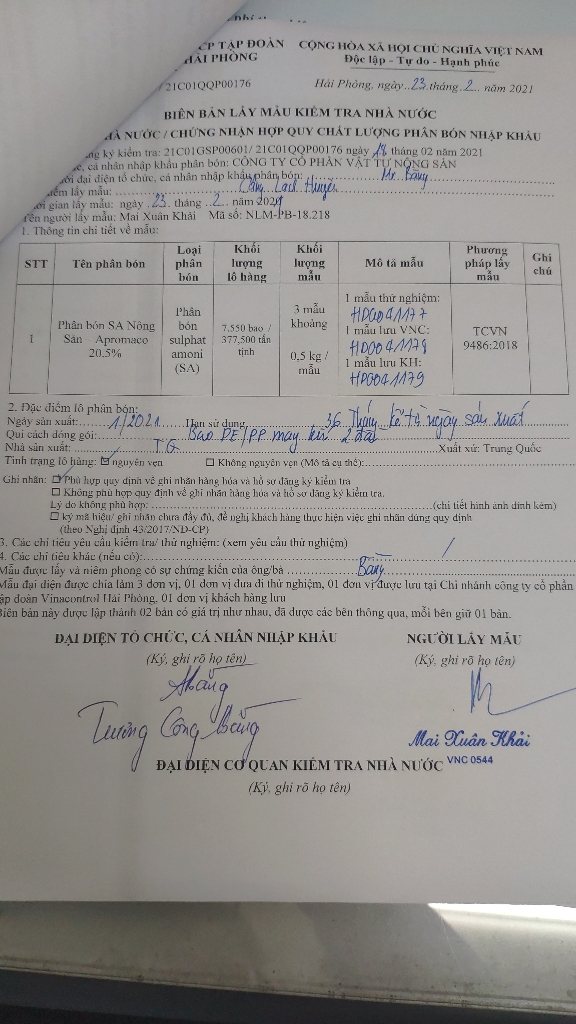 CP TẬP ĐOÀN CỘNG HÒA XÃ HỘI CHỦ NGHĨA VIỆT NAM
HẢI PHÒNG Độc lập - Tự do - Hạnh phúc
/ 21C01QQP00176 Hải Phòng, ngày 23 tháng 2 năm 2021
BIÊN BẢN LẤY MẪU KIỂM TRA NHÀ NƯỚC
HÀ NƯỚC / CHỨNG NHẬN HỢP QUY CHẤT LƯỢNG PHÂN BÓN NHẬP KHẨU
ng ký kiểm tra: 21C01GSP00601/ 21C01QQP00176 ngày 18 tháng 02 năm 2021
c, cá nhân nhập khẩu phân bón: CÔNG TY CỔ PHẦN VẬT TƯ NÔNG SẢN
ời đại diện tổ chức, cá nhân nhập khẩu phân bón: Mr. Bằng
iểm lấy mẫu: Cảng Lạch Huyện
ời gian lấy mẫu: ngày 23 tháng 2 năm 2021
Tên người lấy mẫu: Mai Xuân Khải Mã số: NLM-PB-18.218
1. Thông tin chi tiết về mẫu:
STT Tên phân bón Loại phân bón Khối lượng lô hàng Khối lượng mẫu Mô tả mẫu Phương pháp lấy mẫu Ghi chú
1 Phân bón SA Nông Sản – Apromaco 20,5% Phân bón sulphat amoni (SA) 7.550 bao / 377,500 tấn tịnh 3 mẫu khoảng 0,5 kg / mẫu 1 mẫu thử nghiệm: HD0041177 1 mẫu lưu VNC: HD0041178 1 mẫu lưu KH: HD0041179 TCVN 9486:2018
2. Đặc điểm lô phân bón:
Ngày sản xuất: 1/2021 Hạn sử dụng 36 Tháng kể từ ngày sản xuất
Qui cách đóng gói: Bao PE/PP may kín 2 đầu
Nhà sản xuất: TG Xuất xứ: Trung Quốc
Tình trạng lô hàng: ☑ nguyên vẹn ☐ Không nguyên vẹn (Mô tả cụ thể):
Ghi nhãn: ☑ Phù hợp quy định về ghi nhãn hàng hóa và hồ sơ đăng ký kiểm tra
☐ Không phù hợp quy định về ghi nhãn hàng hóa và hồ sơ đăng ký kiểm tra.
Lý do không phù hợp: (chi tiết hình ảnh đính kèm)
☐ ký mã hiệu/ ghi nhãn chưa đầy đủ, đề nghị khách hàng thực hiện việc ghi nhãn đúng quy định
(theo Nghị định 43/2017/NĐ-CP)
3. Các chỉ tiêu yêu cầu kiểm tra/ thử nghiệm: (xem yêu cầu thử nghiệm)
4. Các chỉ tiêu khác (nếu có): /
Mẫu được lấy và niêm phong có sự chứng kiến của ông/bà Bằng
Mẫu đại diện được chia làm 3 đơn vị, 01 đơn vị đưa đi thử nghiệm, 01 đơn vị được lưu tại Chi nhánh công ty cổ phần
ập đoàn Vinacontrol Hải Phòng, 01 đơn vị khách hàng lưu
Biên bản này được lập thành 02 bản có giá trị như nhau, đã được các bên thông qua, mỗi bên giữ 01 bản.
ĐẠI DIỆN TỔ CHỨC, CÁ NHÂN NHẬP KHẨU NGƯỜI LẤY MẪU
(Ký, ghi rõ họ tên) (Ký, ghi rõ họ tên)
Bằng
Tưởng Công Bằng Mai Xuân Khải
VNC 0544
ĐẠI DIỆN CƠ QUAN KIỂM TRA NHÀ NƯỚC
(Ký, ghi rõ họ tên)